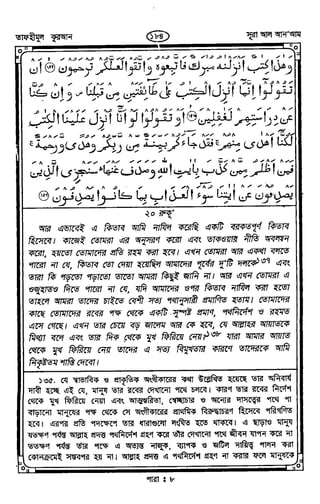 তাফহীমুল কুরআন
১৮৪
সূরা আল আন'আম
وَهٰذَا كِتٰبٌ اَنْزَلْنٰهُ مُبٰرَكٌ فَاتَّبِعُوْهُ وَاتَّقُوْا لَعَلَّكُمْ تُرْحَمُوْنَ ۝ اَنْ
تَقُوْلُوْٓا اِنَّمَآ اُنْزِلَ الْكِتٰبُ عَلٰى طَآئِفَتَيْنِ مِنْ قَبْلِنَا ۠ وَاِنْ كُنَّا
عَنْ دِرَاسَتِهِمْ لَغٰفِلِيْنَ ۝ اَوْ تَقُوْلُوْا لَوْ اَنَّآ اُنْزِلَ عَلَيْنَا الْكِتٰبُ
لَكُنَّآ اَهْدٰى مِنْهُمْ ۚ فَقَدْ جَآءَكُمْ بَيِّنَةٌ مِّنْ رَّبِّكُمْ وَهُدًى وَّرَحْمَةٌ ۚ
فَمَنْ اَظْلَمُ مِمَّنْ كَذَّبَ بِاٰيٰتِ اللّٰهِ وَصَدَفَ عَنْهَا ۗ سَنَجْزِى الَّذِيْنَ
يَصْدِفُوْنَ عَنْ اٰيٰتِنَا سُوْٓءَ الْعَذَابِ بِمَا كَانُوْا يَصْدِفُوْنَ ۝
২০ রুকূ'
আর এভাবেই এ কিতাব আমি নাযিল করেছি একটি বরকতপূর্ণ কিতাব
হিসেবে। কাজেই তোমরা এর অনুসরণ করো এবং তাকওয়ার নীতি অবলম্বন
করো, হয়তো তোমাদের প্রতি রহম করা হবে। এখন তোমরা আর একথা বলতে
পারো না যে, কিতাব তো দেয়া হয়েছিল আমাদের পূর্বের দু'টি দলকে এবং
তারা কি পড়তো পড়াতো তাতো আমরা কিছুই জানি না। আর এখন তোমরা এ
ওজুহাতও দিতে পারো না যে, যদি আমাদের ওপর কিতাব নাযিল করা হতো
তাহলে আমরা তাদের চাইতে বেশী সত্য পথানুসারী প্রমাণিত হতাম। তোমাদের
কাছে তোমাদের রবের পক্ষ থেকে একটি সুস্পষ্ট প্রমাণ, পথনির্দেশ ও রহমত
এসে গেছে। এখন তার চেয়ে বড় জালেম আর কে হবে, যে আল্লাহর আয়াতকে
মিথ্যা বলে এবং তার দিক থেকে মুখ ফিরিয়ে নেয়। যারা আমার আয়াত
থেকে মুখ ফিরিয়ে নেয় তাদের এ সত্য বিমুখতার কারণে তাদেরকে আমি
নিকৃষ্টতম শাস্তি দেবো।
১৩৫. যে স্বাভাবিক ও প্রাকৃতিক অংগীকারের কথা উল্লেখিত হয়েছে তার অনিবার্য
দাবী হচ্ছে এই যে, মানুষ তার রবের দেখানো পথে চলবে। কারণ তার রবের নির্দেশ
থেকে মুখ ফিরিয়ে নেয়া এবং আত্মম্ভরিতা, স্বেচ্ছাচার ও অন্যের দাসত্বের পথে পা
বাড়ানো মানুষের পক্ষ থেকে সে অংগীকারের প্রাথমিক বিরুদ্ধাচরণ হিসেবে পরিগণিত
হবে। এরপর প্রতি পদক্ষেপে তার ধারাগুলো লংঘিত হতে থাকবে। এ ছাড়াও মানুষ
যতক্ষণ পর্যন্ত আল্লাহ প্রদত্ত পথনির্দেশ গ্রহণ করে তাঁর দেখানো পথে জীবন যাপন করে না
ততক্ষণ পর্যন্ত তার পক্ষে এ অত্যন্ত নাজুক, ব্যাপক ও জটিল দায়িত্ব পালন করা
কোনক্রমেই সম্ভবপর হয় না। আল্লাহ প্রদত্ত এ পথনির্দেশ গ্রহণ না করার ফলে মানুষকে
পারা : ৮